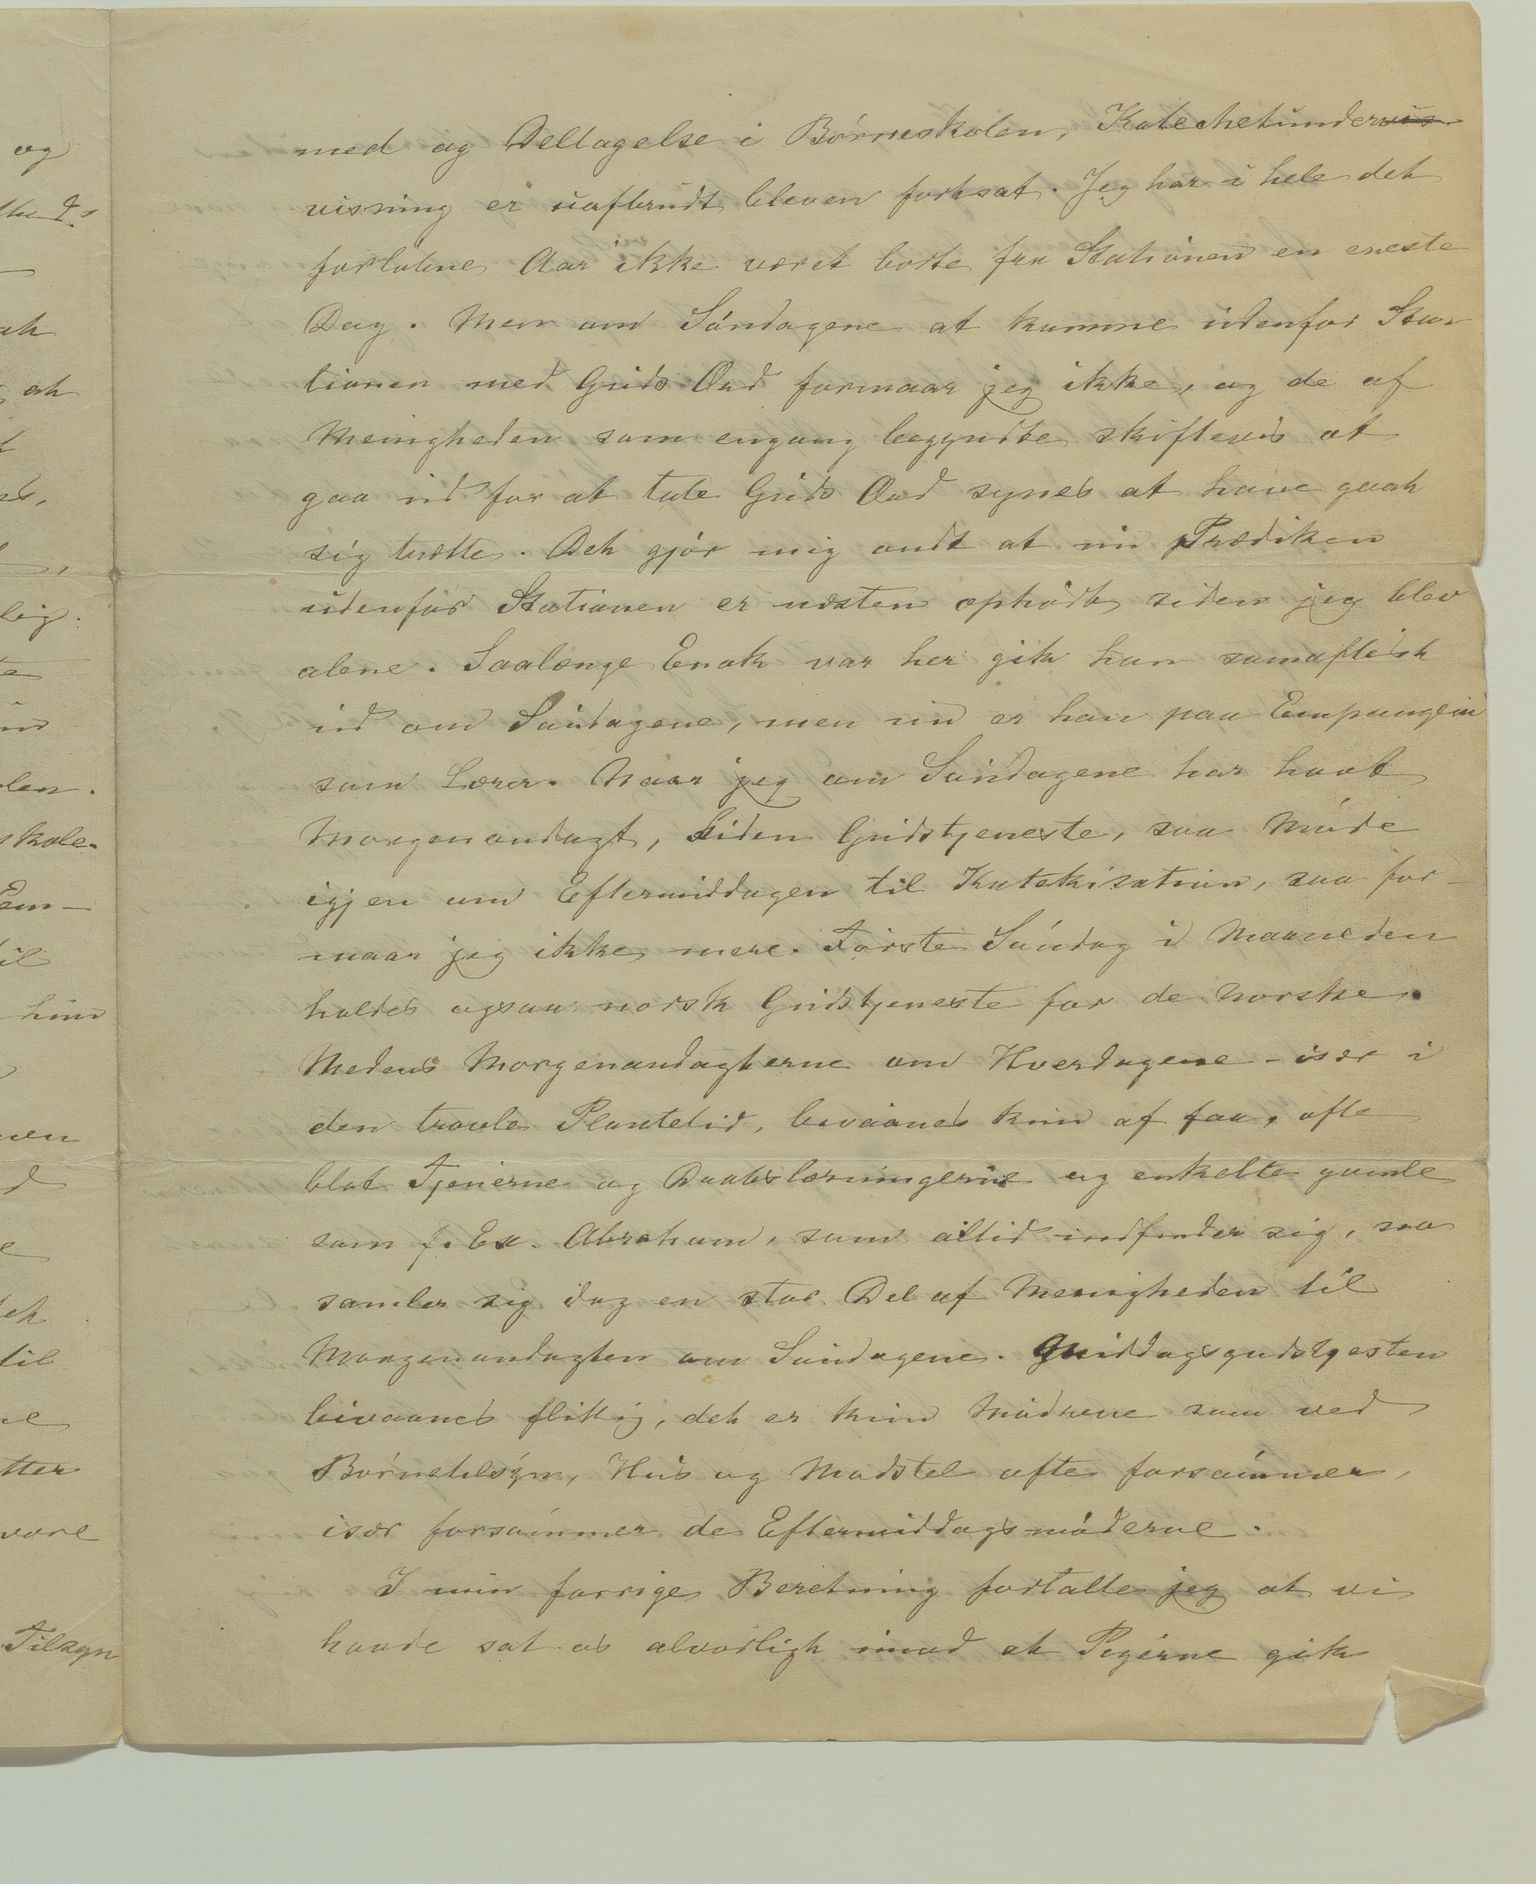 og
ah
ah
len.
skole-
Em-
til
ham
nen
til
tter
være
Tilsyn
med og Deltagelse i Børneskolen, Katechetunder~~vis~~
visning er uafbrudt bleven fortsat. Jeg har i hele det
forløbne Aar ikke været borte fra Stationen en eneste
Dag. Men om Søndagene at kumme udenfor Sta-
tionen med Guds Ord formaar jeg ikke, og de af
Menigheden som engang begyndte skiftevis at
gaa ud for at tale Guds Ord synes at have gaat
sig trætte. Det gjør mig ondt at nu Prædiken
udenfor Stationen er næsten ophødt siden jeg blev
alene. Saalænge Enok var her gik han somoftest
ud om Søndagene, men nu er han paa Empangeni
som Lærer. Naar jeg om Søndagene har havt
Morgenandagt, siden Gudstjeneste, saa Møde
igjen om Eftermiddagen til Katekisation, saa for-
maar jeg ikke mere. Første Søndag i Maaneden
holdes ogsaa norsk Gudstjeneste for de Norske.
Medens Morgenandagterne om Hverdagene - især i
den travle Plantetid, bevaanes kun af faa, ofte
blot Tjenerne og Daabslærningerne og enkelte gamle
som f. Ex. Abraham, som altid indfinder sig, saa
samler sig dog en stor Del af Menigheden til
Morgenandagten om Søndagene. Middagsgudstjesten
bivaanes flittig, det er kun Mødrene som ved
Børnetilsyn, Hus og Madstel ofte forsømmer,
især forsømmer de Eftermiddagsmøderne.
I min forrige Beretning fortalte jeg at vi
havde sat os alvorligt imod at Pigerne gik